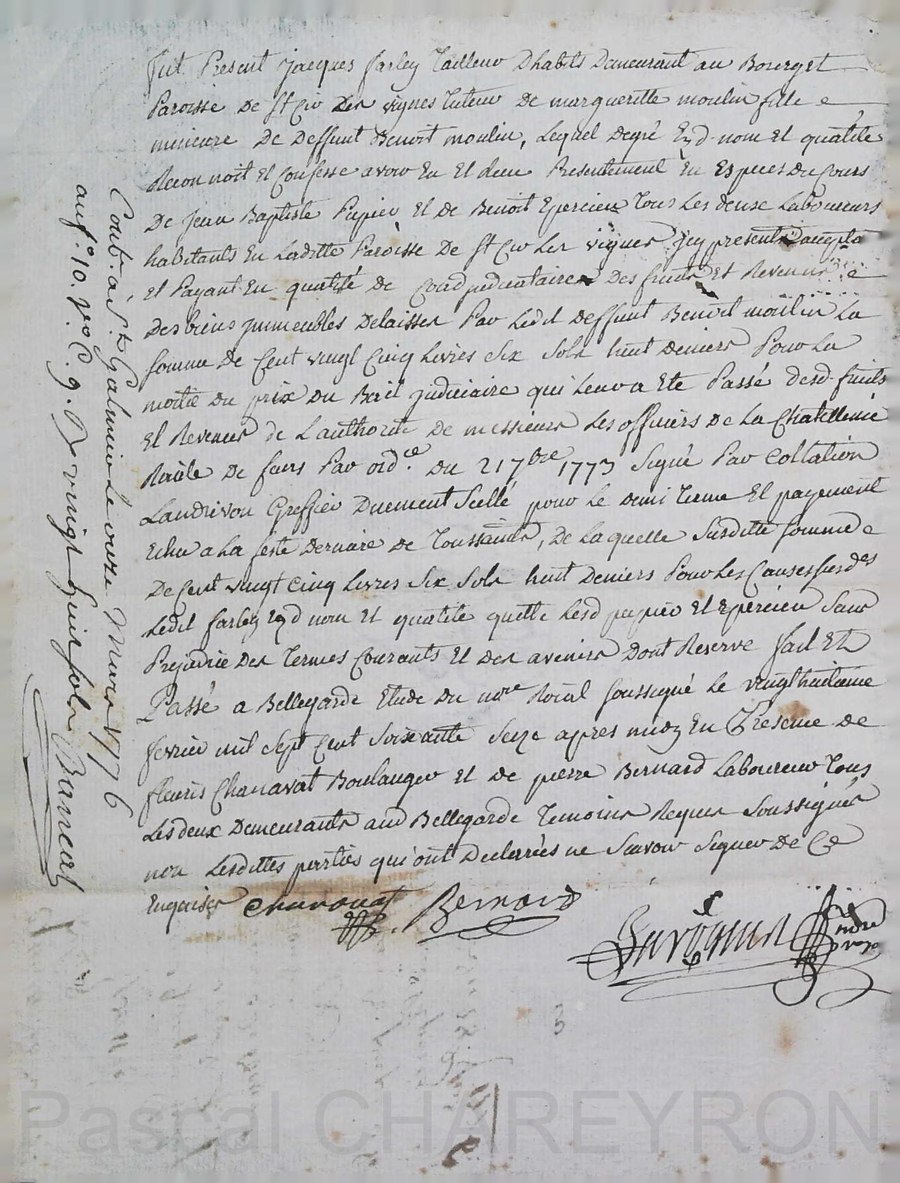 fut Present jacques farley Tailleur Dhabits Demeurant au Bourget
Paroisse De St Cir Les vignes tuteur De margueritte moulin fille
mineure De Deffunt Benoit moulin, Lequel Degré Esd nom et qualité
Reconnoit et Confesse avoir Eu et Recu Presentement En Especes du Cours
De Jean Baptiste Papier et de Benoit Epercieu Tous Les deux Laboureurs
habitants En Laditte Paroisse De St Cir Les vignes jcy presents
et Payant En qualité de Coadjudicataires Des fruits et Revenus
Des biens jmmeubles Delaissés Par Ledit Deffunt Benoit moulin La
somme De Cent vingt Cinq Livres Six Sols huit Deniers Pour La
moitié Du prix Du Bail judiciaire qui Leur a Eté Passé desd fruits
Et Revenus de Lauthorité De messieurs Les officiers De La Chatellenie
Roiale De feurs Par ordce Du 21 7bre 1773 Signé Par Collation
Landrivon Greffier Duement Scellé pour Le Demi terme Et payement
Echu a La feste Derniere De Toussaints, De Laquelle Susditte somme
De Cent vingt Cinq Livres Six Sols huit Deniers Pour Les Causes susdes
Ledit farley Esd nom et qualité quitte Lesd papier et Epercieu Sans
Prejudice Des Termes Courants Et Des avenirs Dont Reserve fait Et
Passé a Bellegarde Etude Du nore Roial soussigné Le vingthuitieme
fevrier mil Sept Cent Soixante Seize apres midy En Presence de
fleuris Chanavat Boulanger et De pierre Bernard Laboureur Tous
Les deux Demeurants aud Bellegarde Temoins Requis Soussignés
non Lesdittes parties qui ont Declarrées ne Scavoir Signer De Ce
Enquises Chavanat
Bernard
Cont. a St Galmier Le onze Mars 1776
au fo. 10. vo. C. 9. R vingt huit sols Bancal
3
Pascal CHAREYRON